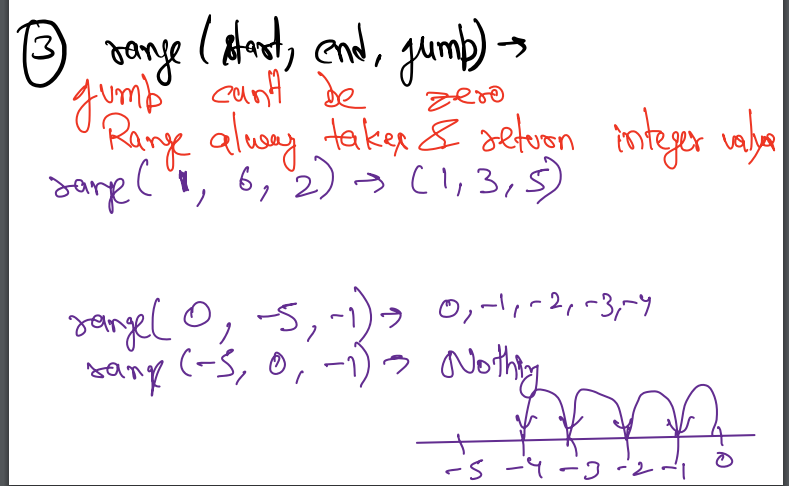 3 range (start, end, jumb) →
jumb can't be zero
Range alway takes & return integer value
range( 1, 6, 2) → (1, 3, 5)
range( 0, -5, -1) → 0, -1, -2, -3, -4
rang (-5, 0, -1) → Nothing
-5 -4 -3 -2 -1 0